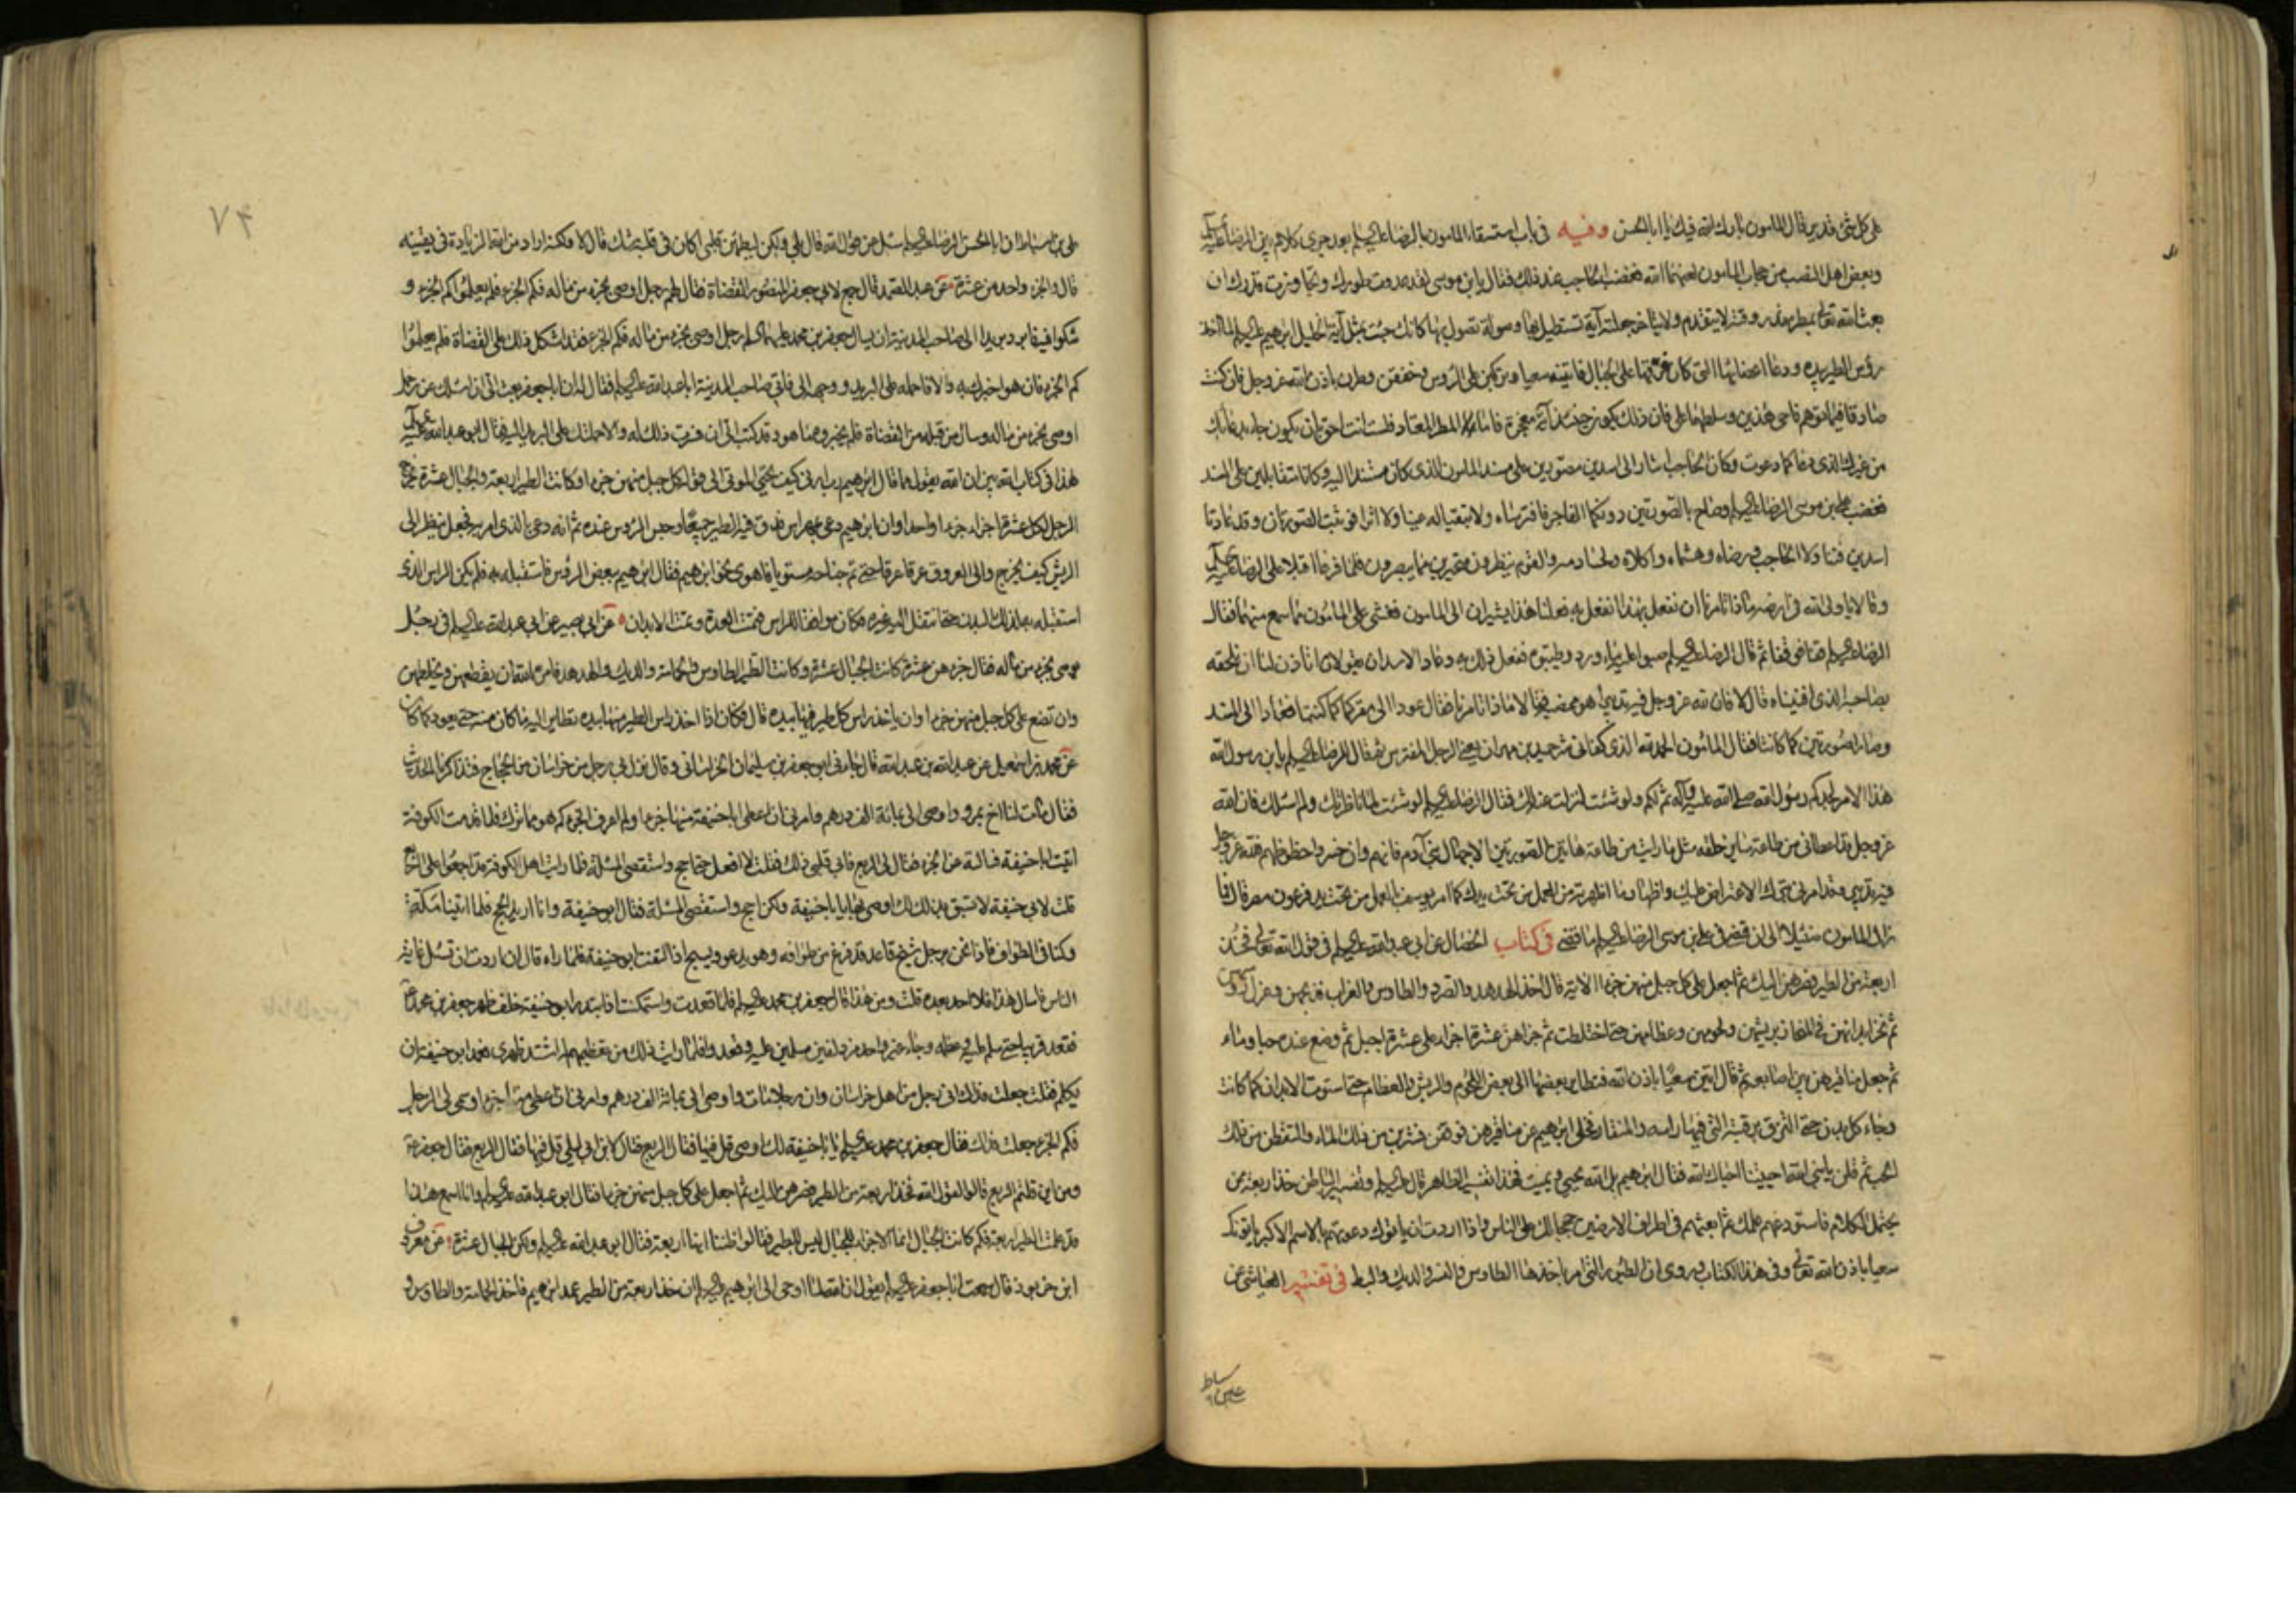 على كل شئ قدير قال المامون بارك الله فيك يا ابا الحسن وفيه فى باب استسقاء المامون بالرضا عليه السلم بعد جرى كلام بين الرضا عليه السلم
وبعض اهل النصب من حجاب المامون لعنهما الله فغضب الحاجب عند ذلك فقال يا بن موسى لقد عدوت طورك وتجاوزت قدرك ان
بعث الله تعالى بمطر مقدر وقته لا يتقدم ولا يتاخر جعلته آية تستطيل بها وصولة تصول بها كانك جئت بمثل آية الخليل ابرهيم عليه السلم لما اخذ
رؤس الطير بيده ودعا اعضائها التى كان فرقها على الجبال فاتينه سعيا وتركبن على الرؤس وخفقن وطرن باذن الله عز وجل فان كنت
صادقا فيما توهم فاحى هذين وسلطهما على فان ذلك يكون حينئذ آية معجزة فاما المطر المعتاد فلست انت احق بان يكون جاء بدعائك
من غيرك الذى دعا كما دعوت وكان الحاجب اشار الى اسدين مصورين على مسند المامون الذى كان مستندا اليه وكانا متقابلين على المسند
فغضب على بن موسى الرضا عليه السلم وصاح بالصورتين دونكما الفاجر فافترساه ولا تبقيا له عينا ولا اثرا فوثبت الصورتان وقد عادتا
اسدين فتناولا الحاجب ورضاه وهشماه واكلاه ولحسا دمه والقوم ينظرون متحيرين مما يبصرون فلما فرغا اقبلا على الرضا عليه السلم
وقالا يا ولى الله فى ارضه ماذا تامرنا ان نفعل بهذا انفعل به فعلنا هذا يشيران الى المامون فغشى على المامون مما سمع منهما فقال
الرضا عليه السلم قفا فوقفا ثم قال الرضا عليه السلم صبوا عليه ماء ورد وطيبوه ففعل ذلك به وعاد الاسدان يقولان اتاذن لنا ان نلحقه
بصاحبه الذى افنيناه قال لا فان لله عز وجل فيه تدبيرا هو ممضيه فقالا فماذا تامرنا فقال عودا الى مقركما كما كنتما فعادا الى المسند
وصارا صورتين كما كانتا فقال المامون الحمد لله الذى كفانى شر حميد بن مهران يعنى الرجل المفترس ثم قال للرضا عليه السلم يا بن رسول الله
هذا الامر لجدكم رسول الله صلى الله عليه وآله ثم لكم ولو شئت لنزلت عنه لك فقال الرضا عليه السلم لو شئت لما ناظرتك ولم اسئلك فان الله
عز وجل قد اعطانى من طاعة ساير خلقه مثل ما رايت من طاعة هاتين الصورتين الا جهال بنى آدم فانهم وان خسروا حظوظهم فلله عز وجل
فيه تدبير وقد امرنى بترك الاعتراض عليك واظهار ما اظهرته من العمل من تحت يدك كما امر يوسف بالعمل من تحت يد فرعون مصر قال فما
زال المامون ضئيلا الى ان قضى فى على بن موسى الرضا عليه السلم ما قضى فى كتاب الخصال عن ابى عبد الله عليه السلم فى قول الله تعالى فخذ
اربعة من الطير فصرهن اليك ثم اجعل على كل جبل منهن جزءا الاية قال اخذ الهدهد والصرد والطاوس والغراب فذبحهن وعزل رؤسهن
ثم نحز ابدانهن فى المنحاز بريشهن ولحومهن وعظامهن حتى اختلطت ثم جزاهن عشرة اجزاء على عشرة اجبل ثم وضع عنده حبا وماء
ثم جعل مناقيرهن بين اصابعه ثم قال ائتين سعيا باذن الله فتطاير بعضها الى بعض اللحوم والريش والعظام حتى استوت الابدان كما كانت
وجاء كل بدن حتى التزق برقبته التى فيها راسه والمنقار فخلى ابرهيم عن مناقيرهن فوقعن فشربن من ذلك الماء والتقطن من ذلك
الحب ثم قلن يا نبى الله احييتنا احياك الله فقال ابرهيم بل الله يحيى ويميت فهذا تفسير الظاهر قال عليه السلم وتفسير الباطن خذ اربعة ممن
يحتمل الكلام فاستودعهم علمك ثم ابعثهم فى اطراف الارضين حججا لك على الناس واذا اردت ان ياتوك دعوتهم بالاسم الاكبر ياتونك
سعيا باذن الله تعالى وفى هذا الكتاب وروى ان الطيور التى امر باخذها الطاوس والنسر والديك والبط فى تفسير العياشى عن
على بن اسباط
على بن اسباط ان ابا الحسن الرضا عليه السلم سئل عن قول الله قال بلى ولكن ليطمئن قلبى اكان فى قلبه شك قال لا ولكنه اراد من الله الزيادة فى يقينه
قال والجزء واحد من عشرة عن عبد الصمد قال جمع لابى جعفر المنصور القضاة فقال لهم رجل اوصى بجزء من ماله فكم الجزء فلم يعلموا كم الجزء و
شكوا فيه فابرد بريدا الى صاحب المدينة ان يسال جعفر بن محمد عليهما السلم رجل اوصى بجزء من ماله فكم الجزء فقد اشكل ذلك على القضاة فلم يعلموا
كم الجزء فان هو اخبرك به والا فاحمله على البريد ووجهه الى فاتى صاحب المدينة ابا عبد الله عليه السلم فقال له ان ابا جعفر بعث الى ان اسئلك عن رجل
اوصى بجزء من ماله وسال من قبله من القضاة فلم يخبروه ما هو وقد كتب الى ان فسرت ذلك له والا حملتك على البريد اليه فقال ابو عبد الله عليه السلم
هذا فى كتاب الله بين ان الله يقول لما قال ابرهيم رب ارنى كيف تحيى الموتى الى قوله كل جبل منهن جزءا وكانت الطير اربعة والجبال عشرة يخرج
الرجل لكل عشرة اجزاء جزءا واحدا وان ابرهيم دعى بمهراس فدق فيه الطير جميعا وحبس الرؤس عنده ثم انه دعى بالذى امر به فجعل ينظر الى
الريش كيف يخرج والى العروق عرقا عرقا حتى تم جناحه مستويا فاهوى نحو ابرهيم فقال ابرهيم ببعض الرؤس فاستقبله به فلم يكن الراس الذى
استقبله به لذلك البدن حتى انتقل اليه غيره فكان موافقا للراس فتمت العدة وتمت الابدان عن ابى بصير عن ابى عبد الله عليه السلم فى رجل
يوصى بجزء من ماله فقال جزء من عشرة كانت الجبال عشرة وكانت الطير الطاوس والحمامة والديك والهدهد فامره الله ان يقطعهن ويخلطهن
وان تضع على كل جبل منهن جزءا وان ياخذ راس كل طير فيها بيده قال فكان اذا اخذ راس الطير منها بيده تطاير اليه ما كان منه حتى يعود كما كان
عن محمد بن اسمعيل عن عبد الله بن عبد الله قال جاءنى ابو جعفر بن سليمان الخراسانى وقال نزل بى رجل من خراسان من الحجاج فتذاكرنا الحديث
فقال مات لنا اخ بمرو واوصى الى بمائة الف درهم وامرنى ان اعطى ابا حنيفة منها جزءا ولم اعرف الجزء كم هو مما ترك فلما قدمت الكوفة
اتيت ابا حنيفة فسالته عن الجزء فقال لى الربع فابى قلبى ذلك فقلت لا افعل حتى احج واستقصى المسئلة فلما رايت اهل الكوفة قد اجمعوا على الربع
قلت لابى حنيفة لا سبق بذلك لك اوصى بها يا ابا حنيفة ولكن احج واستقصى المسئلة فقال ابو حنيفة وانا اريد الحج فلما اتينا مكة
وكنا فى الطواف فاذا نحن برجل شيخ قاعد قد فرغ من طوافه وهو يدعو ويسبح اذا التفت ابو حنيفة فلما راه قال ان اردت ان تسئل غاية
الناس فاسال هذا فلا احد بعده قلت ومن هذا قال جعفر بن محمد عليه السلم فلما قعدت واستمكنت اذ استدار ابو حنيفة خلف ظهر جعفر بن محمد
فقعد قريبا منى سلم عليه وعظمه وجاء غير واحد مزدلفين مسلمين عليه وقعدوا فلما رايت ذلك من تعظيمهم له اشتد ظهرى فغمز ابو حنيفة ان
تكلم فقلت جعلت فداك انى رجل من اهل خراسان وان رجلا مات واوصى الى بمائة الف درهم وامرنى ان اعطى منها جزءا وسمى لى الرجل
فكم الجزء جعلت فداك فقال جعفر بن محمد عليه السلم يا ابا حنيفة لك اوصى قل فيها فقال الربع فقال لابن ابى ليلى قل فيها فقال الربع فقال جعفر
ومن اين قلتم الربع قالوا لقول الله فخذ اربعة من الطير فصرهن اليك ثم اجعل على كل جبل منهن جزءا فقال ابو عبد الله عليه السلم وانا اسمع هذا
قد علمت الطير اربعة فكم كانت الجبال انما الاجزاء للجبال ليس للطير فقالوا ظننا انها اربعة فقال ابو عبد الله عليه السلم ولكن الجبال عشرة عن معروف
ابن خربوذ قال سمعت ابا جعفر عليه السلم يقول ان الله لما اوحى الى ابرهيم عليه السلم ان خذ اربعة من الطير عمد ابرهيم فاخذ الحمامة والطاوس و